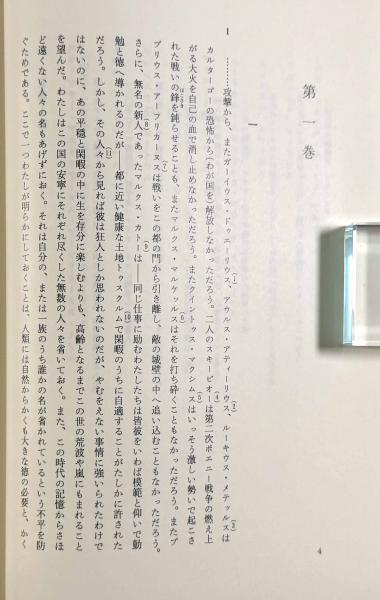 第一巻
一
1 ………攻撃から、またガーイウス・ドゥエーリウス、アウルス・アティーリウス、ルーキウス・メテッルスは
(1)
(2)
(3)
カルターゴーの恐怖から(わが国を)解放しなかっただろう。二人のスキーピオーは第二次ポエニー戦争の燃え上
(4)
がる大火を自己の血で消し止めなかっただろう。またクイントゥス・マクシムスはいっそう激しい勢いで起こさ
(5)
れた戦いの鋒を鈍らせることも、またマルクス・マルケッルスはそれを打ち砕くこともなかっただろう。またプ
ほこさき
(6)
ブリウス・アーフリカーヌスは戦いをこの都の門から引き離し、敵の城壁の中へ追い込むこともなかっただろう。
(7)
さらに、無名の新人であったマルクス・カトーは——同じ仕事に励むわたしたちは皆彼をいわば模範と仰いで勤
(8)
(9)
勉と徳へ導かれるのだが——都に近い健康な土地トゥスクルムで閑暇のうちに自適することがたしかに許された
(10)
だろう。しかし、その人々から見れば彼は狂人としか思われないのだが、やむをえない事情に強いられたわけで
(11)
はないのに、あの平穏と閑暇の中に生を存分に楽しむよりも、高齢となるまでこの世の荒波や嵐にもまれること
を望んだ。わたしはこの国の安寧にそれぞれ尽くした無数の人々を省いておく。また、この時代の記憶からさほ
ど遠くない人々の名もあげずにおく。それは自分の、または一族のうち誰かの名が省かれているという不平を防
ぐためである。ここで一つわたしが明らかにしておくことは、人類には自然からかくも大きな徳の必要と、かく
4